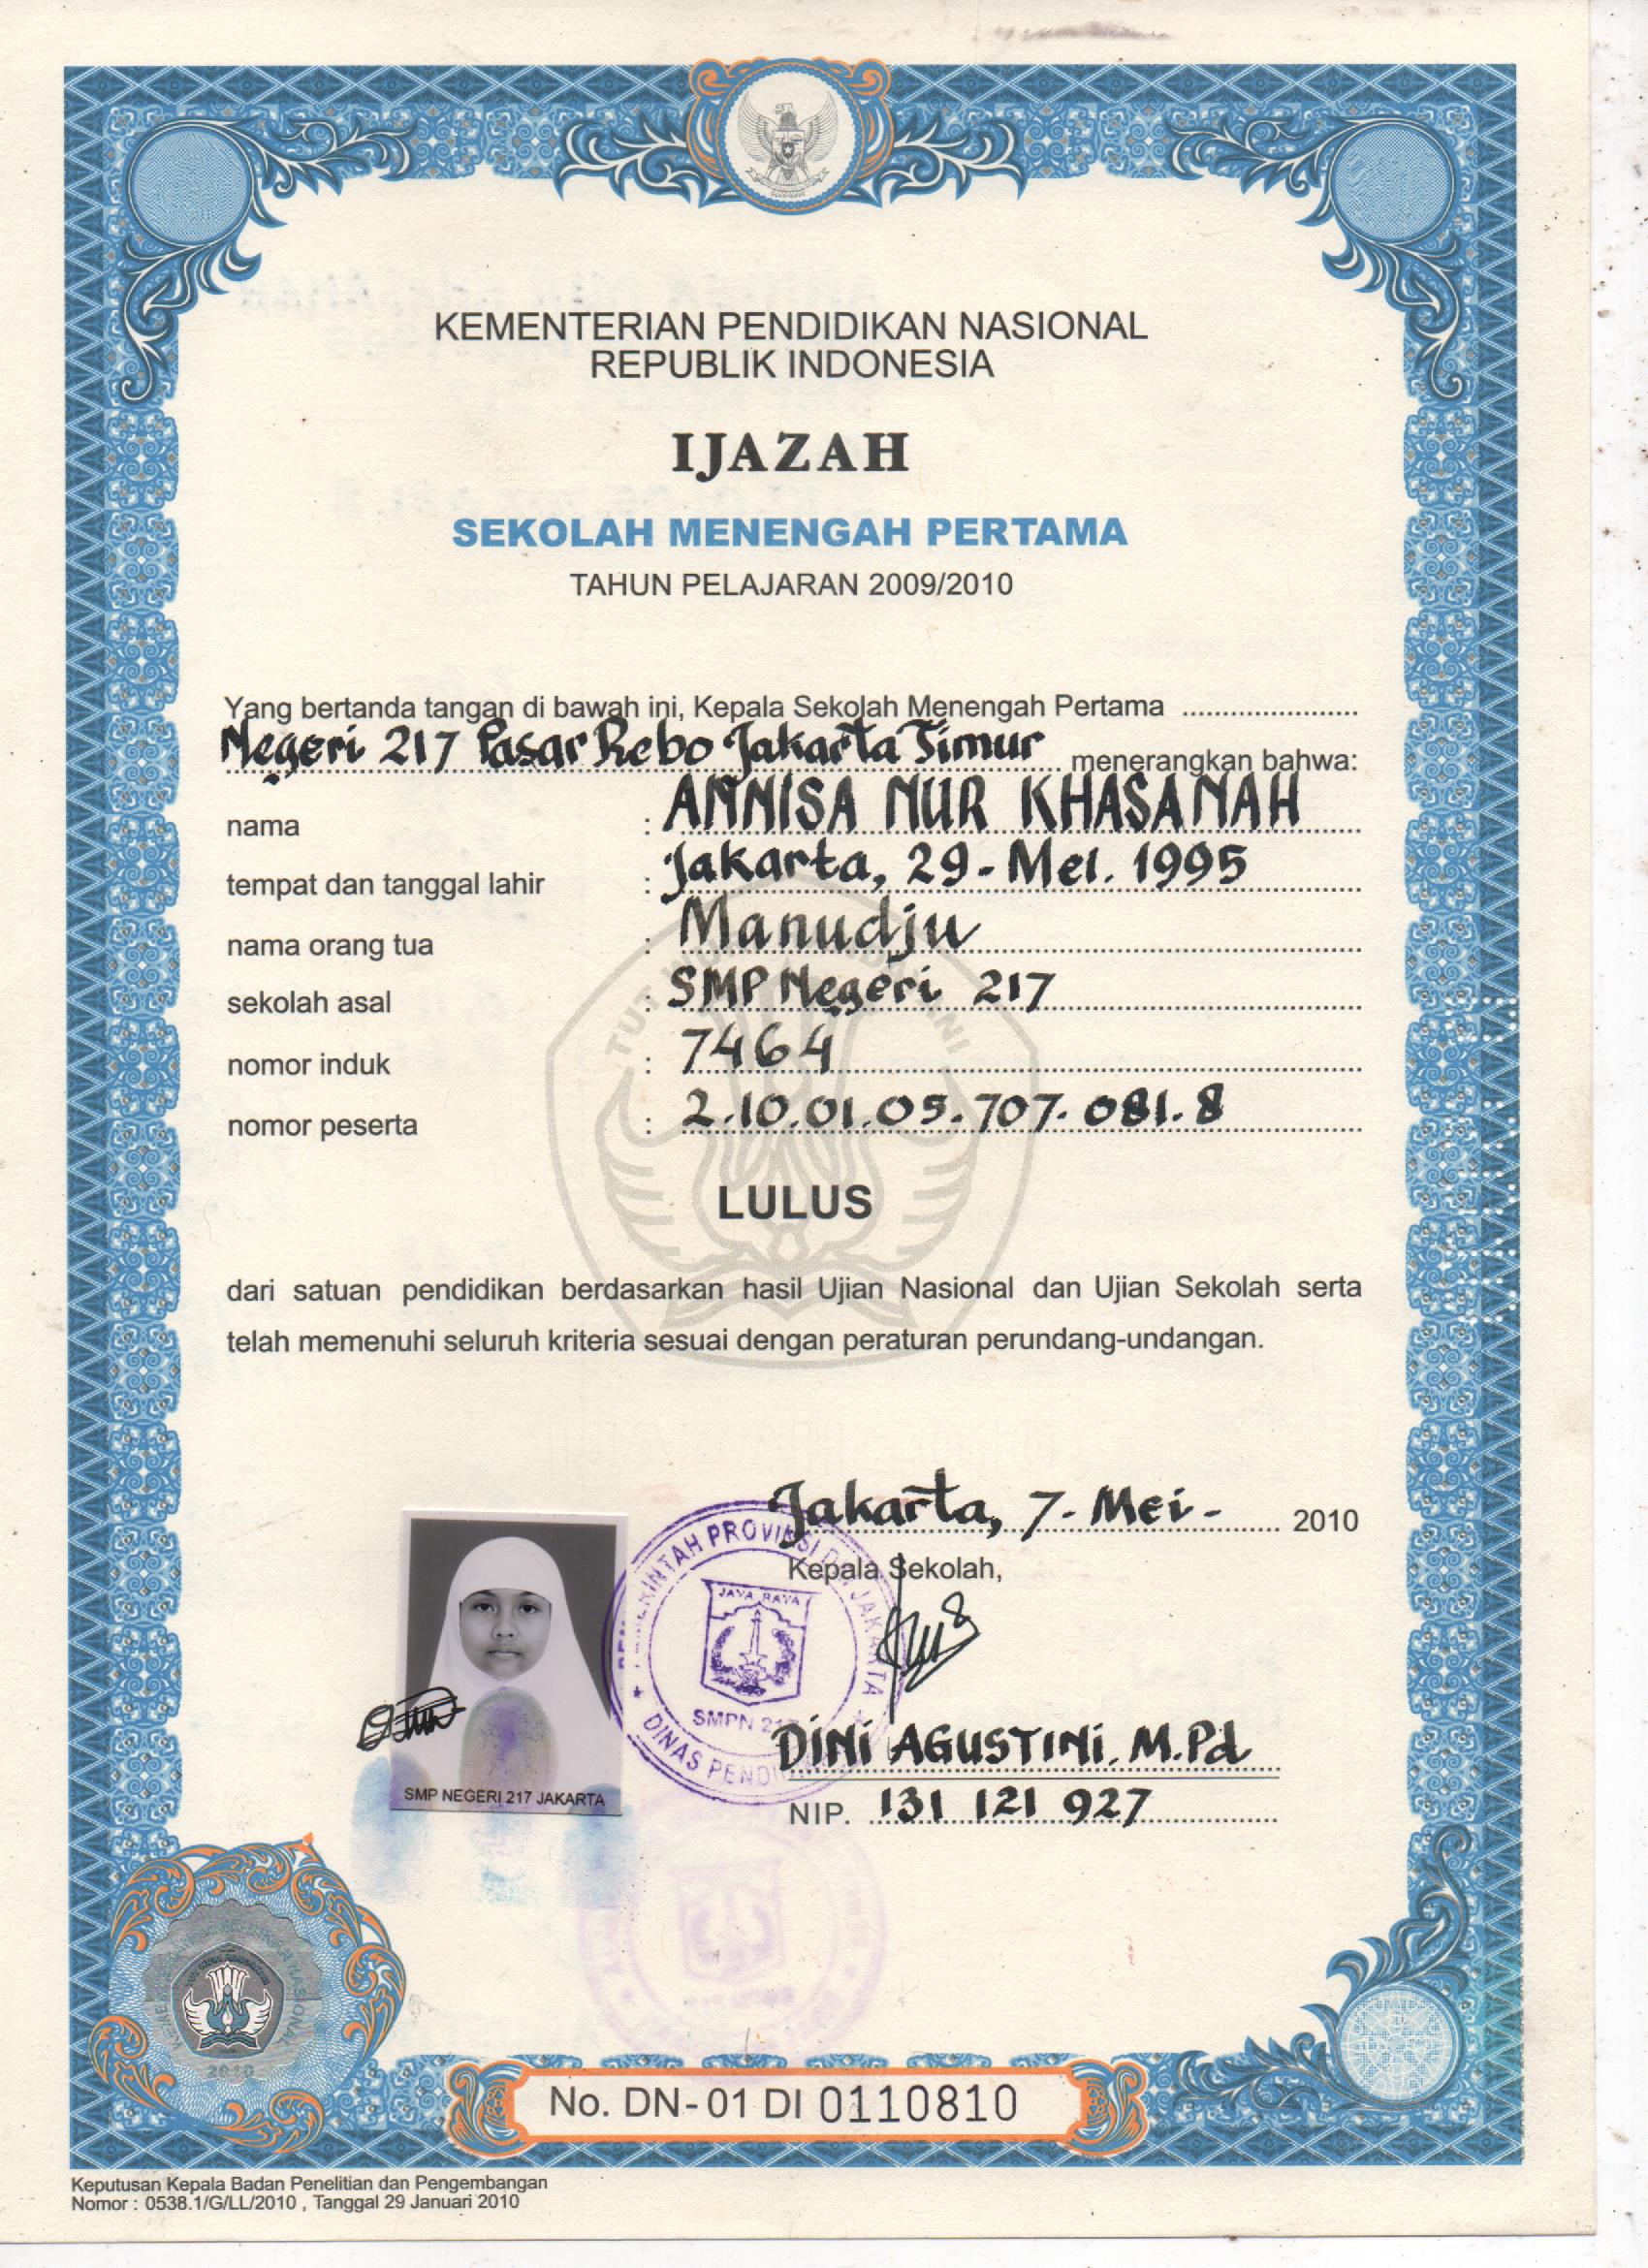 KEMENTERIAN PENDIDIKAN NASIONAL
REPUBLIK INDONESIA
IJAZAH
SEKOLAH MENENGAH PERTAMA
TAHUN PELAJARAN 2009/2010
Yang bertanda tangan di bawah ini, Kepala Sekolah Menengah Pertama ......................
Negeri 217 Pasar Rebo Jakarta Timur menerangkan bahwa:
nama : ANNISA NUR KHASANAH
tempat dan tanggal lahir : Jakarta, 29-Mei. 1995
nama orang tua : Manudju
sekolah asal : SMP Negeri 217
nomor induk : 7464
nomor peserta : 2.10.01.05.707.081.8
TUT
LULUS
dari satuan pendidikan berdasarkan hasil Ujian Nasional dan Ujian Sekolah serta
telah memenuhi seluruh kriteria sesuai dengan peraturan perundang-undangan.
Jakarta, 7-Mei- 2010
Kepala Sekolah,
PEMERINTAH PROVINSI DKI JAKARTA
JAYA RAYA
SMPN 217
DINAS
DINI AGUSTINI. M.Pd
NIP. 131 121 927
SMP NEGERI 217 JAKARTA
2010
No. DN-01 DI 0110810
Keputusan Kepala Badan Penelitian dan Pengembangan
Nomor : 0538.1/G/LL/2010 , Tanggal 29 Januari 2010